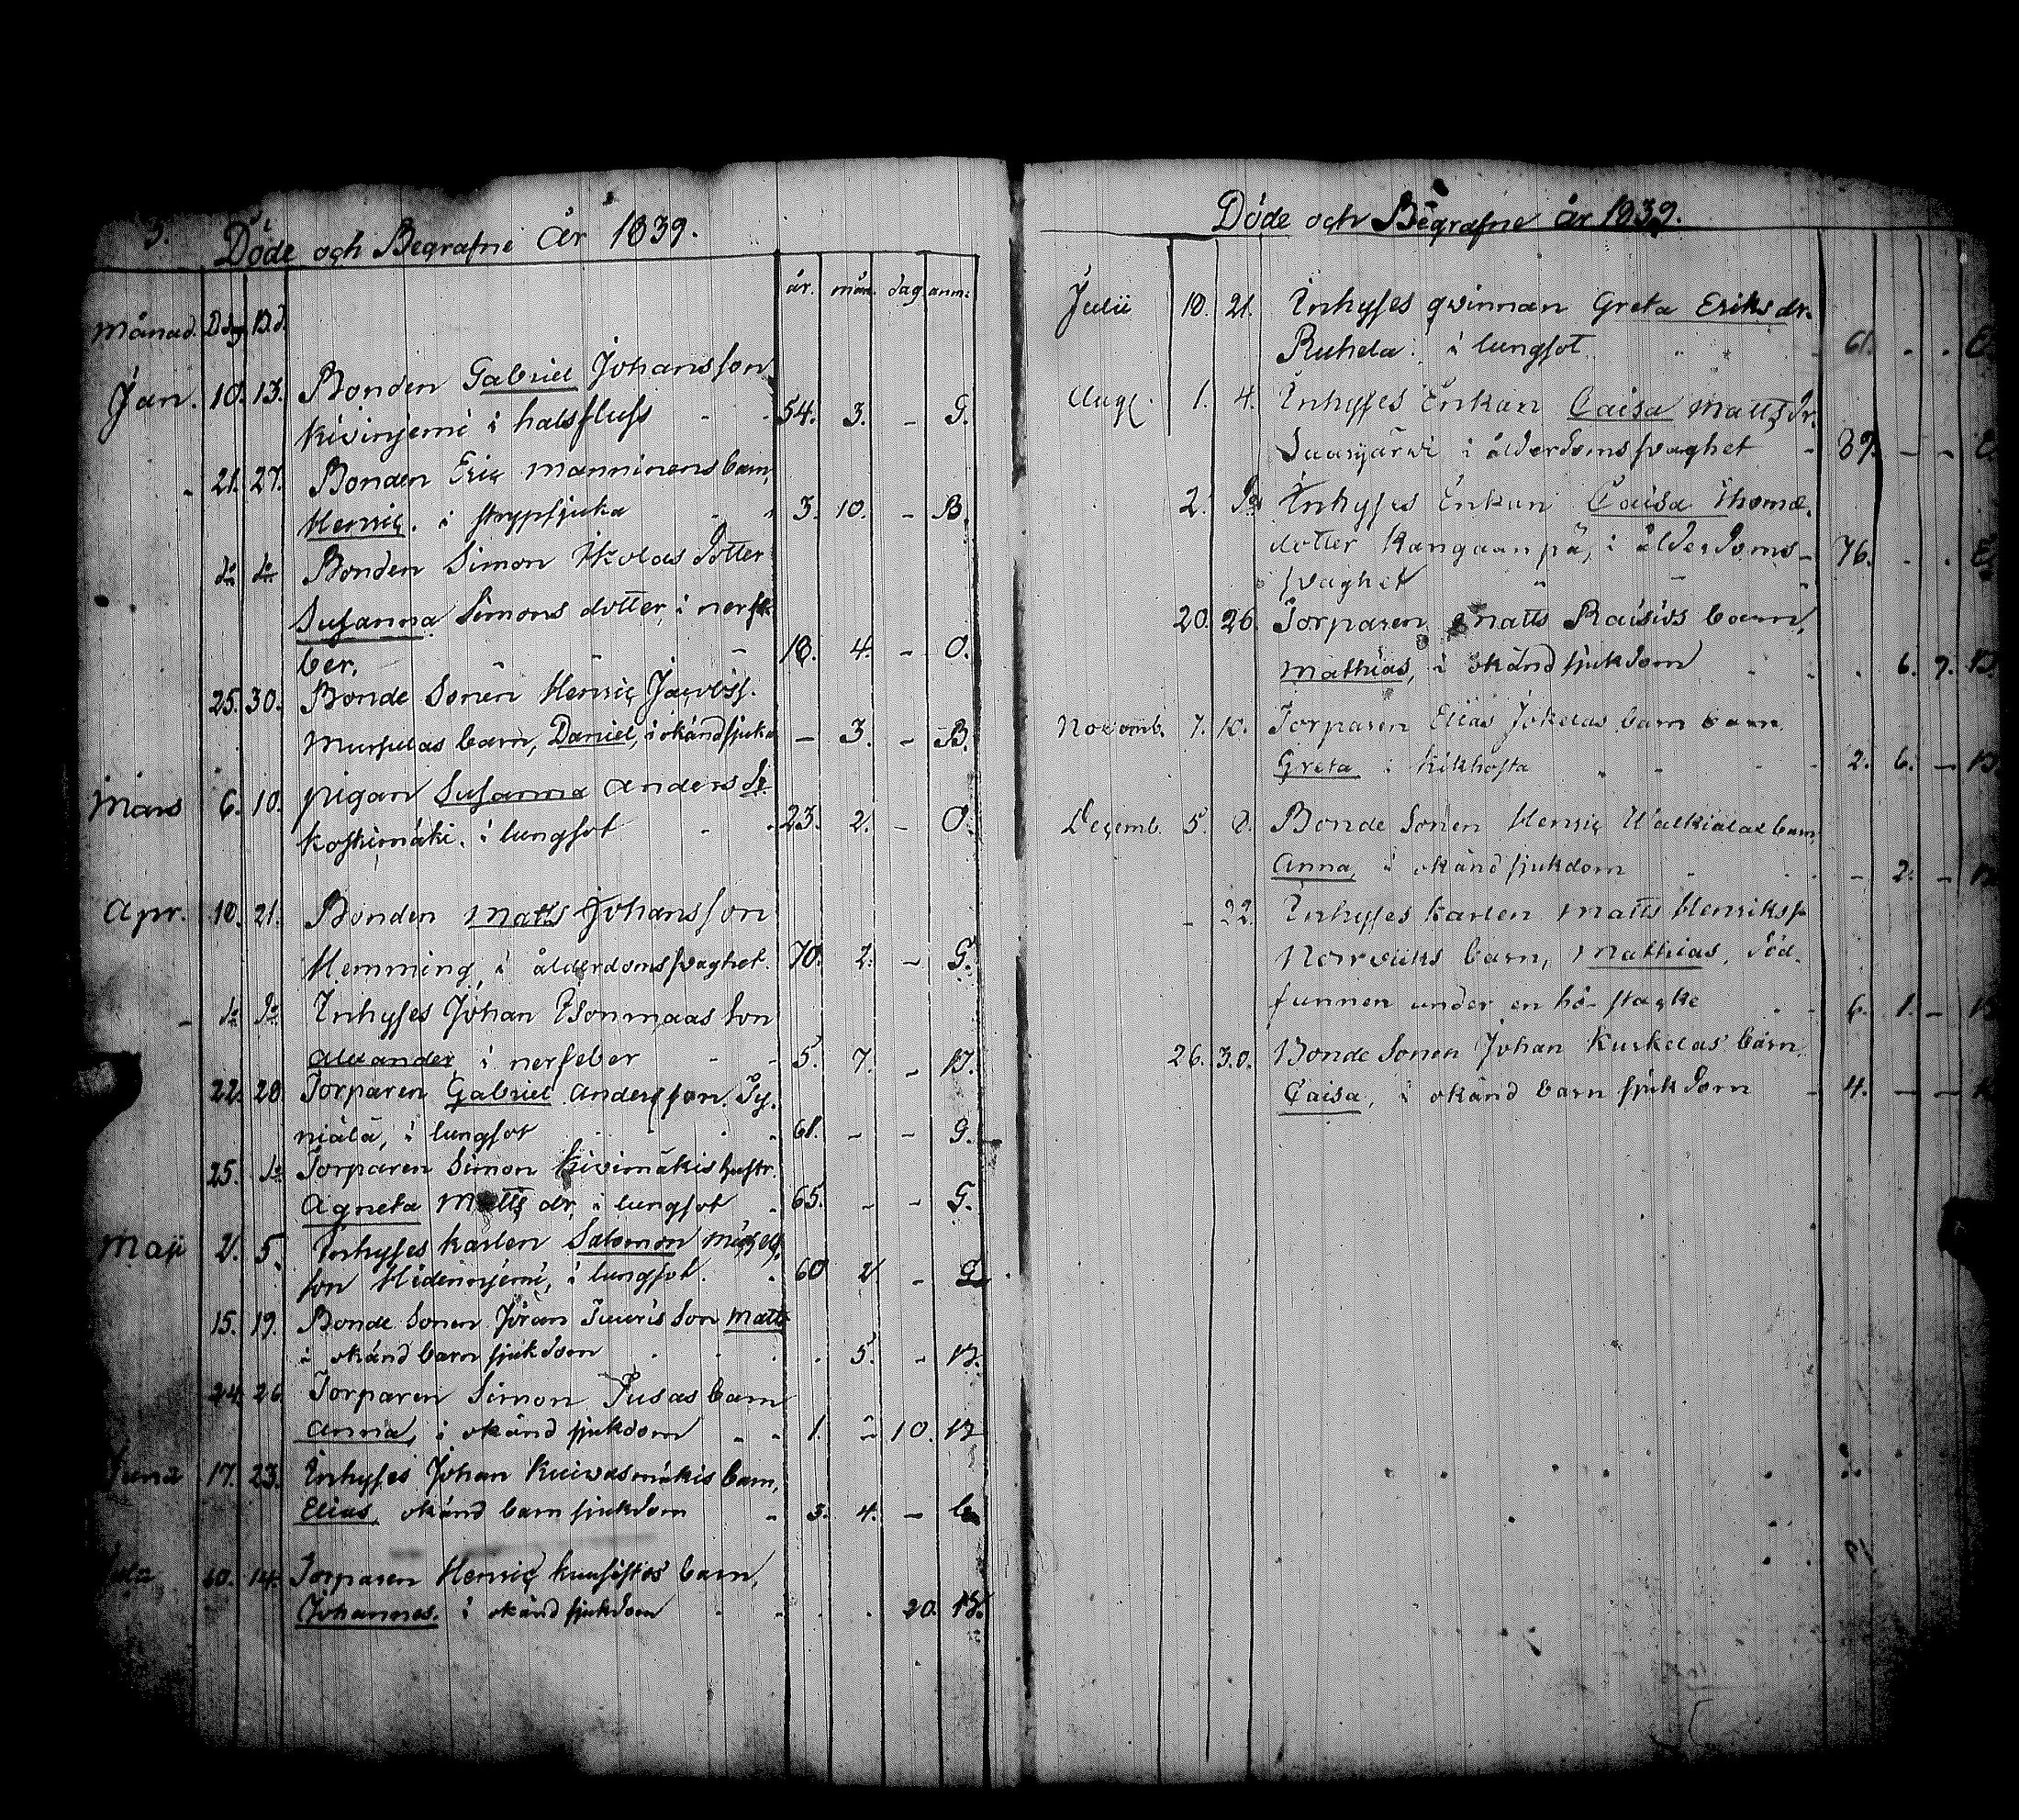 3. Döde och Begrafne År 1839.
Månad. D.dag B.d. år. mån. dag anm.
Jan. 10. 13. Bonden Gabriel Johansson
Kivinjemi i halsfluss - - 54. 3. - G.
- 21. 27. Bonden Eric Manninens barn,
Henric. i strypsjuka - - 3. 10. - B.
do do Bonden Simon Ikolas dotter
Susanna Simons dotter, i nerfe-
ber. - - - 18. 4. - O.
25. 30. Bonde Sonen Henric Jacobss.
Mursulas barn, Daniel, i okänd sjuka - 3. - B.
Mars 6. 10. pigan Susanna Anders dr.
Koskimäki. i lungsot - - 23. 2. - O.
Apr. 10. 21. Bonden Matts Johansson
Hemming, i ålderdomssvaghet. 70. 2. - G.
- do do Inhyses Johan Isonmaas Son
Alexander, i nerfeber - - 5. 7. - B.
22. 28. Torparen Gabriel Andersson. Py-
niälä, i lungsot - - - 61. - - G.
25. do Torparen Simon Kivimäkis hustr.
Agneta Matts dr, i lungsot - 65. - - G.
Maji 2. 5. Inhyses karlen Salomon
son Hidennjemi, i lungsot. - 60 2 - G
15. 19. Bonde Sonen Jöran Tuuris Son Matts
i okänd barn sjukdom - - - . 5. - B.
24. 26 Torparen Simon Pusas barn
Anna, i okänd sjukdom - - 1. - 10. B
Junii 17. 23. Inhyses Johan Kuivasmäkis barn,
Elias, okänd barn sjukdom - 3. 4. - B
14. Torparen Henric Kuusistos barn,
Johannes. i okänd sjukdom - - . . 20. B.
Döde och Begrafne år 1839.
Julii 18. 21. Inhyses qvinnan Greta Eriks dr.
Ruhela. i lungsot. - 61. . .
Aug. 1. 4. Inhyses Enkan Caisa Matts dr.
Saarijärvi i ålderdoms svaghet - 89. - -
2. do Inhyses Enkan Caisa Thomæ
dotter Kangaanpä, i ålderdoms- 76. . .
svaghet - - -
20. 26. Torparen Matts Raisios barn,
Mathias, i okänd sjukdom - - . 6. 7. B.
Novemb. 7. 10. Torparen Elias Jokelas barn barn
Greta i kikhosta - - - 2. 6. - B.
Decemb. 5. 8. Bonde Sonen Henric Walkialas barn,
Anna, i okänd sjukdom - - - 2. - B
- 22. Inhyses karlen Matts Henrikss.
Norrviiks barn, Mathias, död-
funnen under en hö-stacke - - 6. 1. - B
26. 30. Bonde Sonen Johan Kuskelas barn.
Caisa, i okänd barn sjukdom - 4. - -